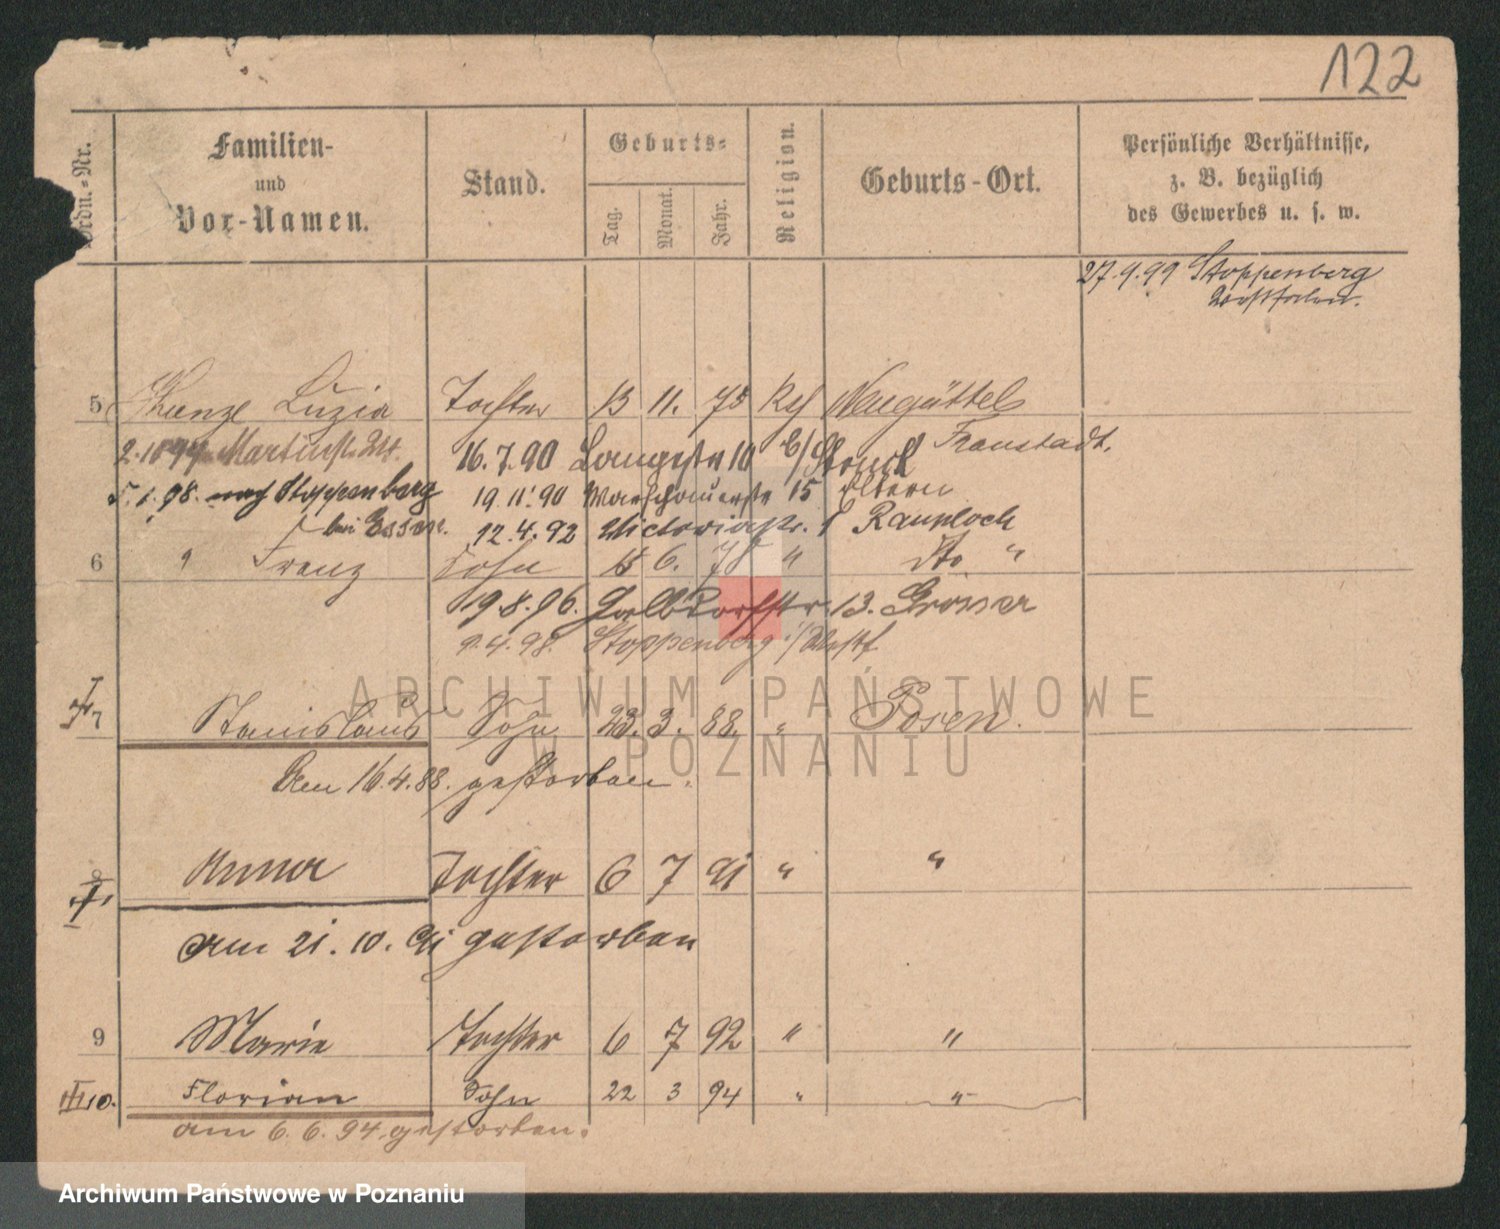 122
Ordn.-Nr.
Familien- und Vor-Namen.
Stand.
Geburts-
Tag.
Monat.
Jahr.
Religion.
Geburts-Ort.
Persönliche Verhältnisse, z. B. bezüglich des Gewerbes u. s. w.
27.9.99 Stoppenberg
Westfalen.
5 Kunze Luzia Tochter 13 11. 75 Neugüttel
Fraustadt.
2.10 94 Martinstr. 24. 16.7.90 Langestr 10 b/ Struck
5.1.98. nach Stoppenberg 19.11.90 Warschauerstr 15 Eltern
bei Essen. 12.4.92 Victoriastr. 8 Rauploch
6 " Franz Sohn 6. 78 " dto "
19.8.96. 13. Grösser
9.4.98. Stoppenberg i/Westf
7 Stanislaus Sohn 23. 3. 88. " Posen.
Am 16.4.88. gestorben.
8 Anna Tochter 6 7 91 " "
am 21.10.91 gestorben
9 Marie Tochter 6 7 92 " "
III 10. Florian Sohn 22 3 94 " "
am 6.6.94 gestorben.
ARCHIWUM PAŃSTWOWE
W POZNANIU
Archiwum Państwowe w Poznaniu